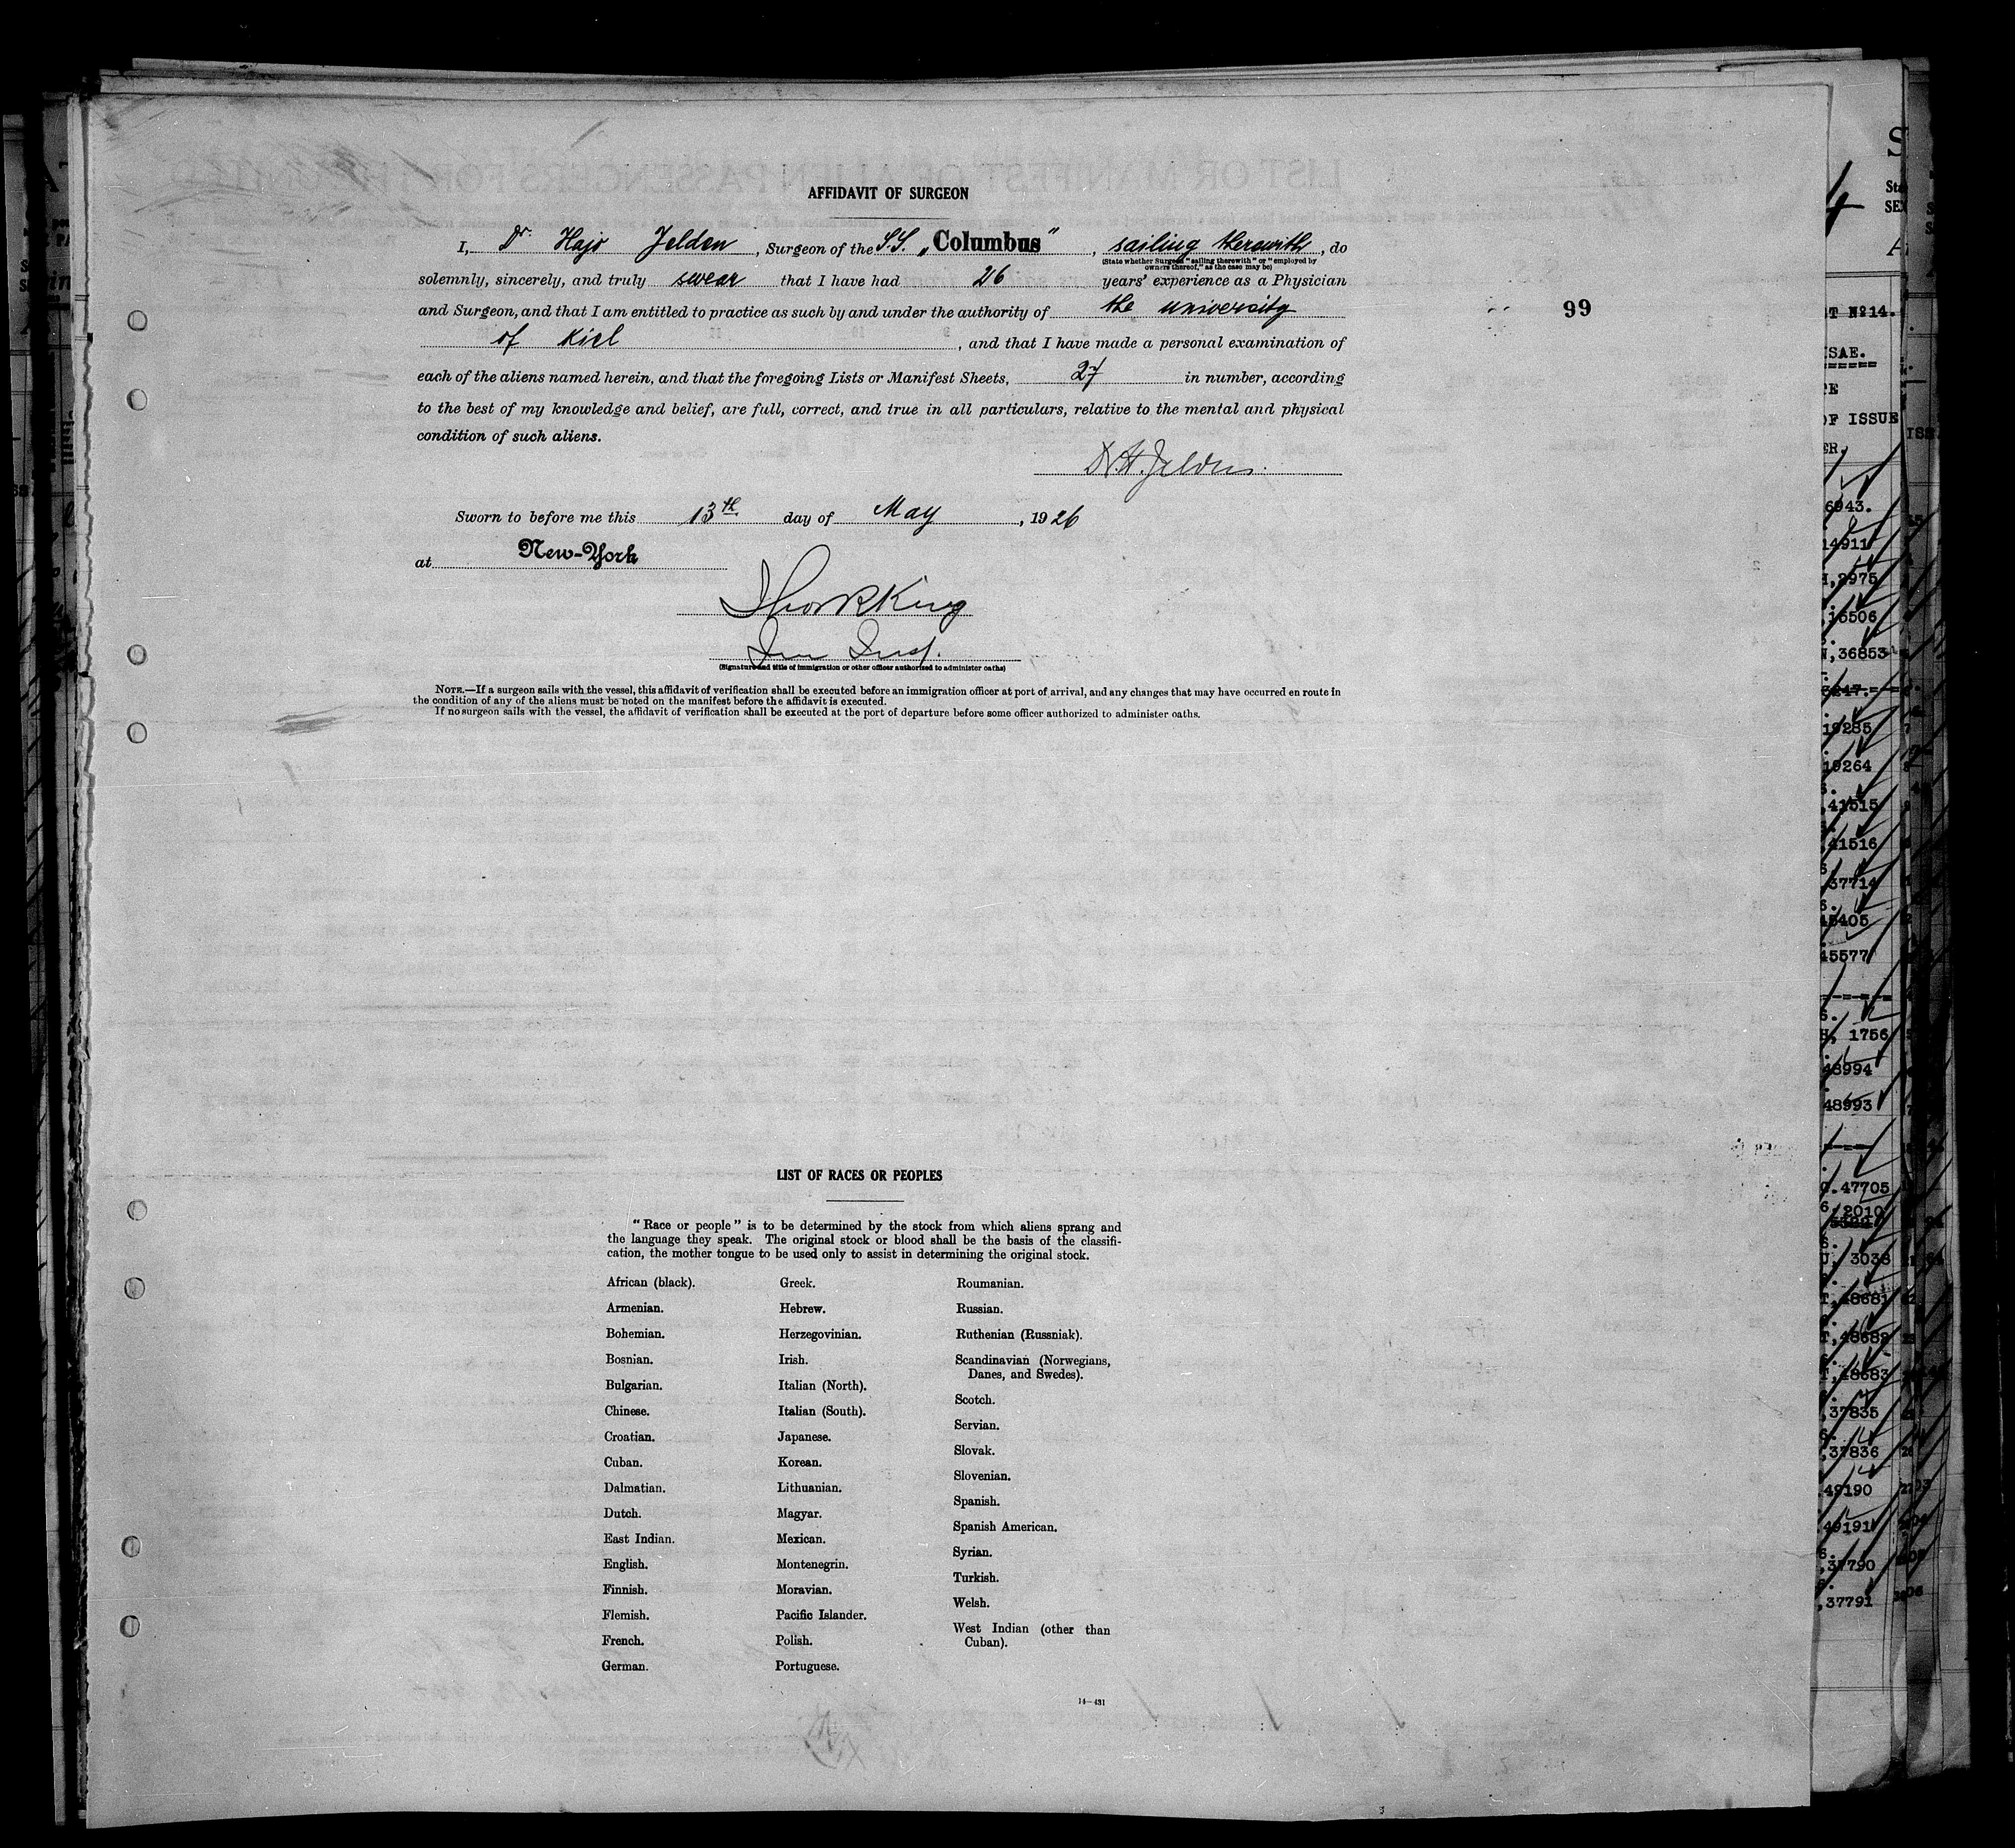 AFFIDAVIT OF SURGEON
I, Dr. Hajo Jelden, Surgeon of the S.S. „Columbus", sailing therewith, do
(State whether Surgeon "sailing therewith" or "employed by
owners thereof," as the case may be)
solemnly, sincerely, and truly swear that I have had 26 years' experience as a Physician
and Surgeon, and that I am entitled to practice as such by and under the authority of the university
of Kiel, and that I have made a personal examination of
each of the aliens named herein, and that the foregoing Lists or Manifest Sheets, 27 in number, according
to the best of my knowledge and belief, are full, correct, and true in all particulars, relative to the mental and physical
condition of such aliens.
Dr. H. Jelden.
Sworn to before me this 13th day of May, 1926
at New-York
Thos R King
Imm Insp.
(Signature and title of immigration or other officer authorized to administer oaths)
NOTE.—If a surgeon sails with the vessel, this affidavit of verification shall be executed before an immigration officer at port of arrival, and any changes that may have occurred en route in
the condition of any of the aliens must be noted on the manifest before the affidavit is executed.
If no surgeon sails with the vessel, the affidavit of verification shall be executed at the port of departure before some officer authorized to administer oaths.
99
LIST OF RACES OR PEOPLES
"Race or people" is to be determined by the stock from which aliens sprang and
the language they speak. The original stock or blood shall be the basis of the classifi-
cation, the mother tongue to be used only to assist in determining the original stock.
African (black).
Armenian.
Bohemian.
Bosnian.
Bulgarian.
Chinese.
Croatian.
Cuban.
Dalmatian.
Dutch.
East Indian.
English.
Finnish.
Flemish.
French.
German.
Greek.
Hebrew.
Herzegovinian.
Irish.
Italian (North).
Italian (South).
Japanese.
Korean.
Lithuanian.
Magyar.
Mexican.
Montenegrin.
Moravian.
Pacific Islander.
Polish.
Portuguese.
Roumanian.
Russian.
Ruthenian (Russniak).
Scandinavian (Norwegians,
Danes, and Swedes).
Scotch.
Servian.
Slovak.
Slovenian.
Spanish.
Spanish American.
Syrian.
Turkish.
Welsh.
West Indian (other than
Cuban).
14—431